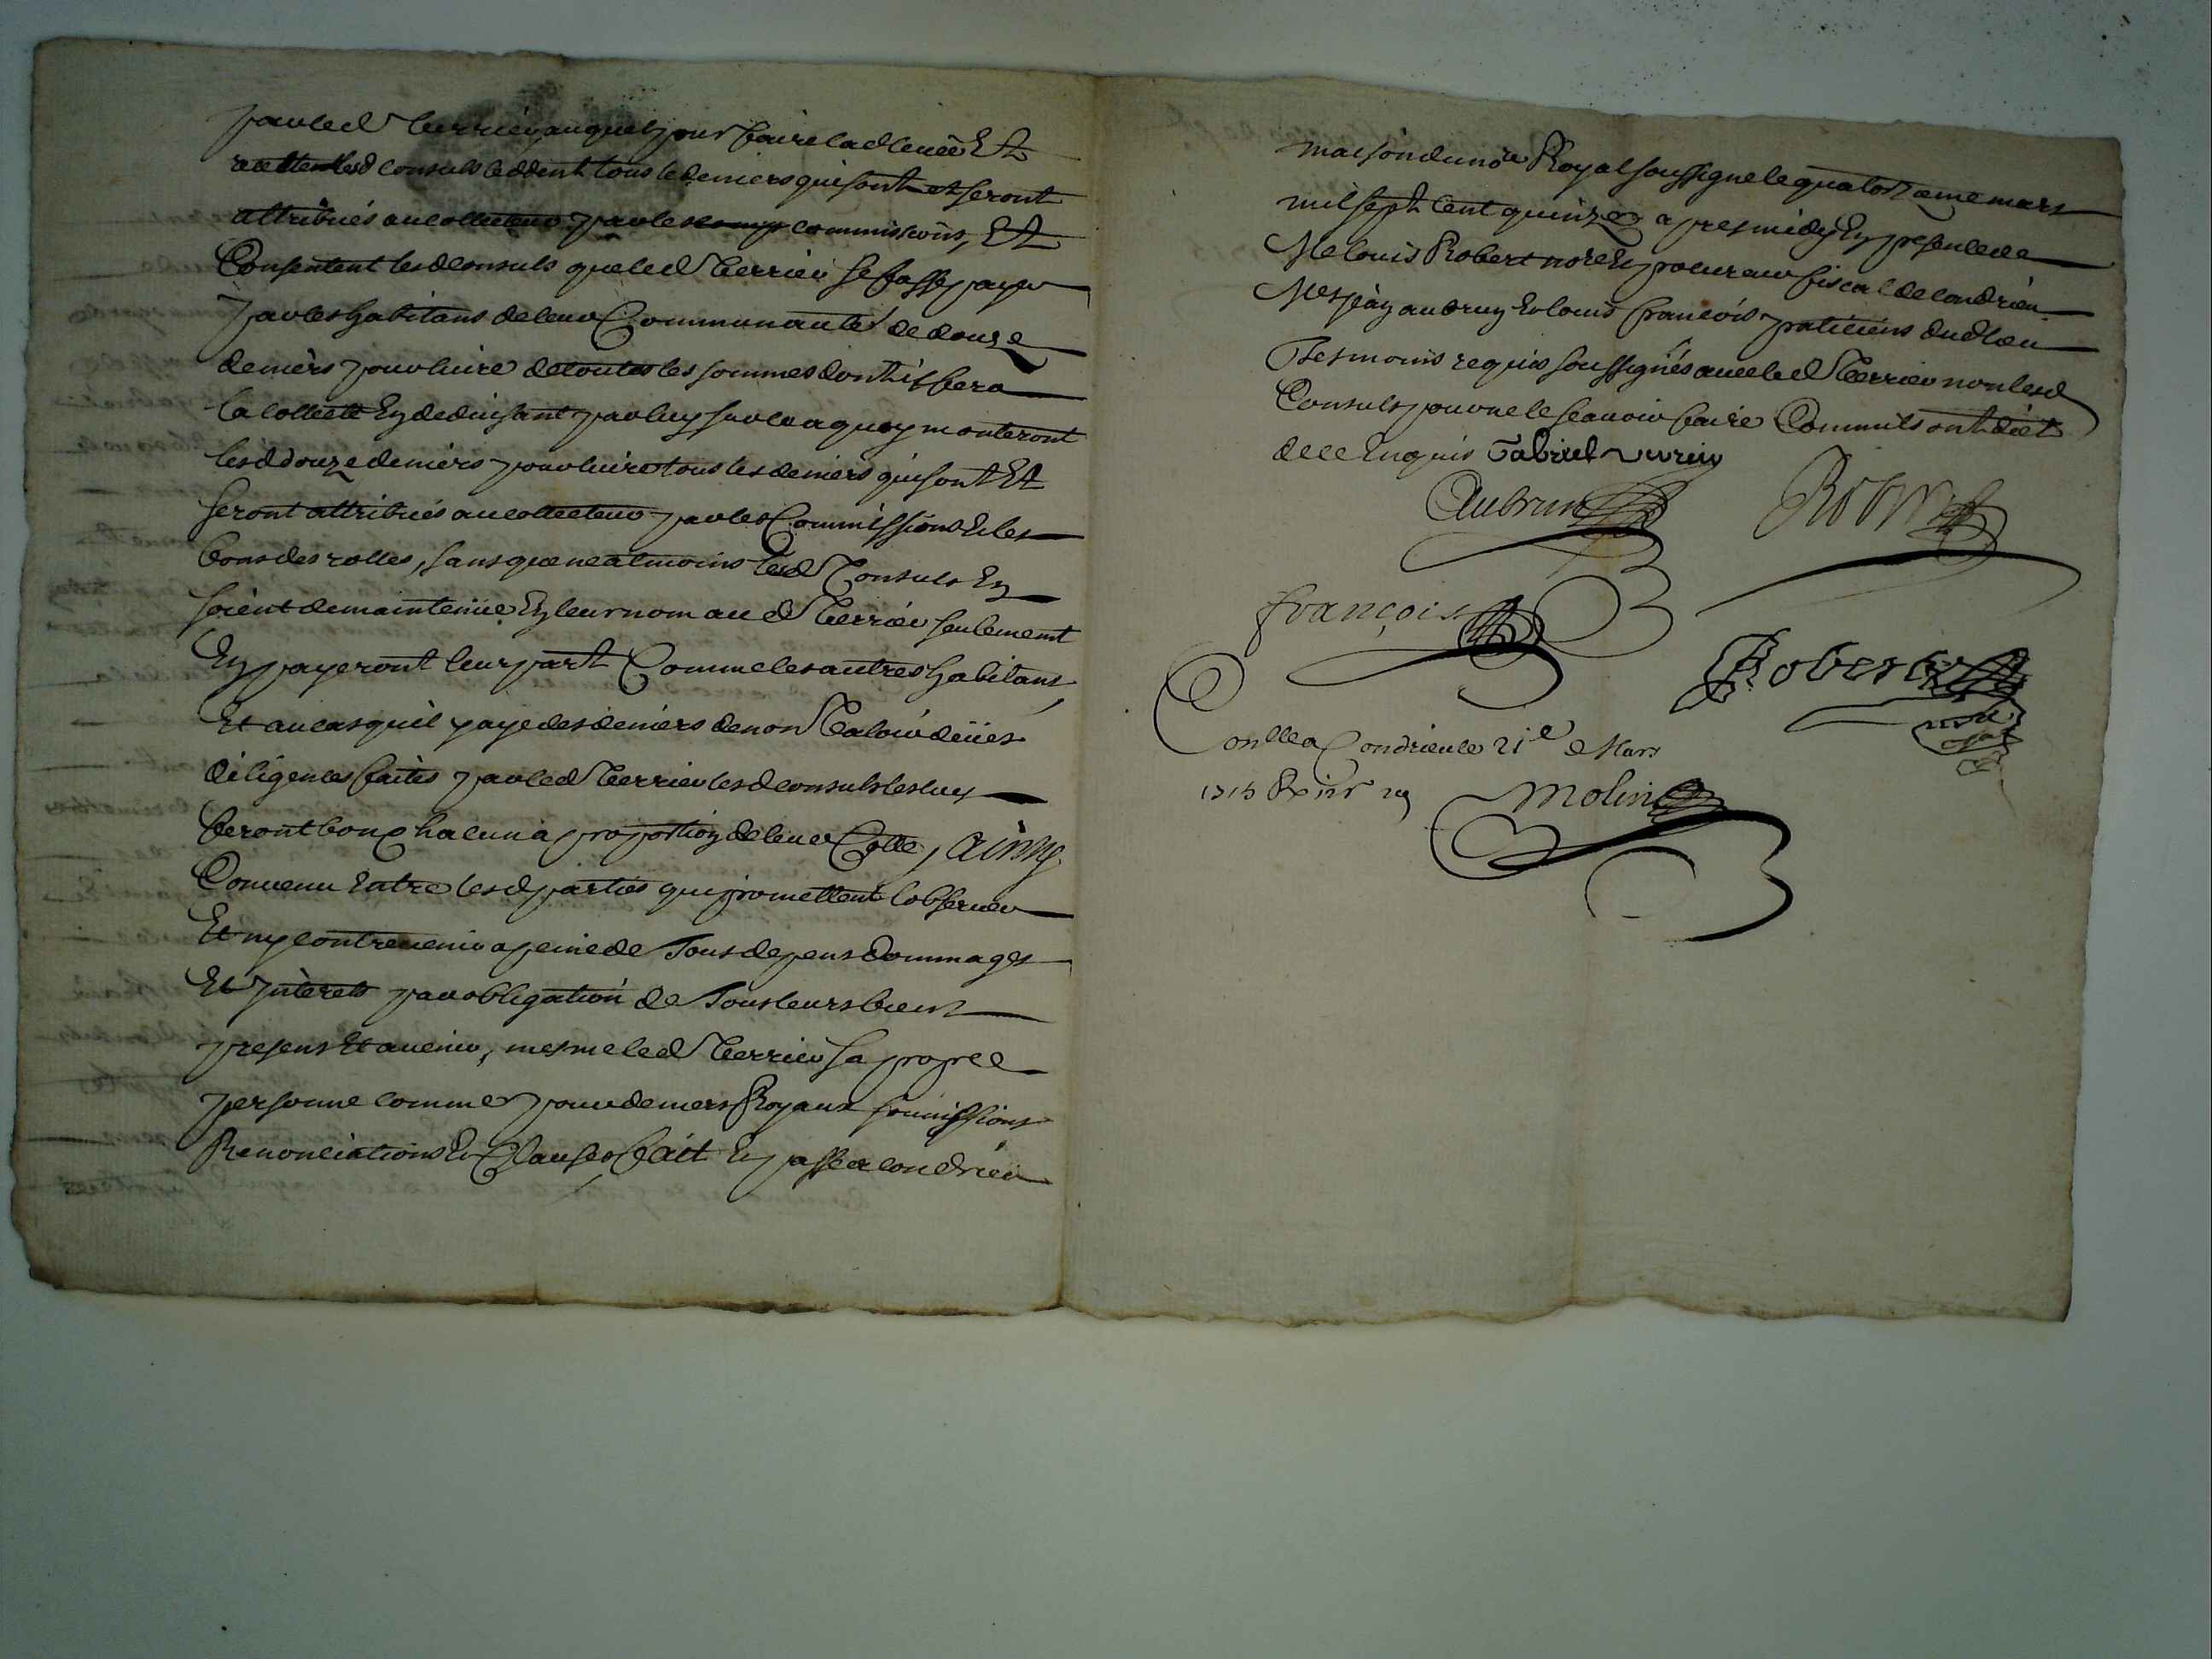 par led Verrier, auquel pour faire lad levée Et
recette lesd consuls ceddent tous le deniers qui sont et seront
attribués au collecteur par les commissions, Et
Consentent lesd consuls que led Verrier se fasse payer
par les habitans de leur Communauté de douze
deniers pour livre de toutes les sommes dont il fera
la collecte En deduisant par luy sur ce a quoy monteront
lesd douze deniers pour livre tous les deniers qui sont Et
seront attribués au collecteur par les Commissions Et les
bons des rolles, sans que neatmoins lesd Consuls En
soient de maintenue En leur nom au d Verrier seulement
En payeront leur part Comme les autres habitans,
Et au cas quil paye des deniers de non Valoir deües
diligences faites par led Verrier lesd consuls les luy
feront bon chacun a proportion de leur Cotte, ainsy
Convenu Entre lesd parties qui promettent lobserver
Et ny contrevenir a peine de Tous depens Dommages
Et Jnterets par obligation de Tous leurs biens
presens Et avenir, mesme led Verrier sa propre
personne comme pour deniers Royaux soumissions
Renonciations Et Clauses fait En passé a condrieu
maison du no.re Royal soussigne le quatorzieme mars
mil sept cent quinze apres midy En presence de
Me louis Robert no.re Et procureur fiscal de condrieu
Mes jean aubrun Et louis francois praticiens dud lieu
Tesmoins requis soussignés avec led Verrier non lesd
Consuls pour ne le scavoir faire Comme ils ont dict
de ce Enquis Gabriel verrier
Aubrun Robert
françois
Robert
no.re
royal
Conlle a Condrieu le 21e Mars
1715 R
Molin